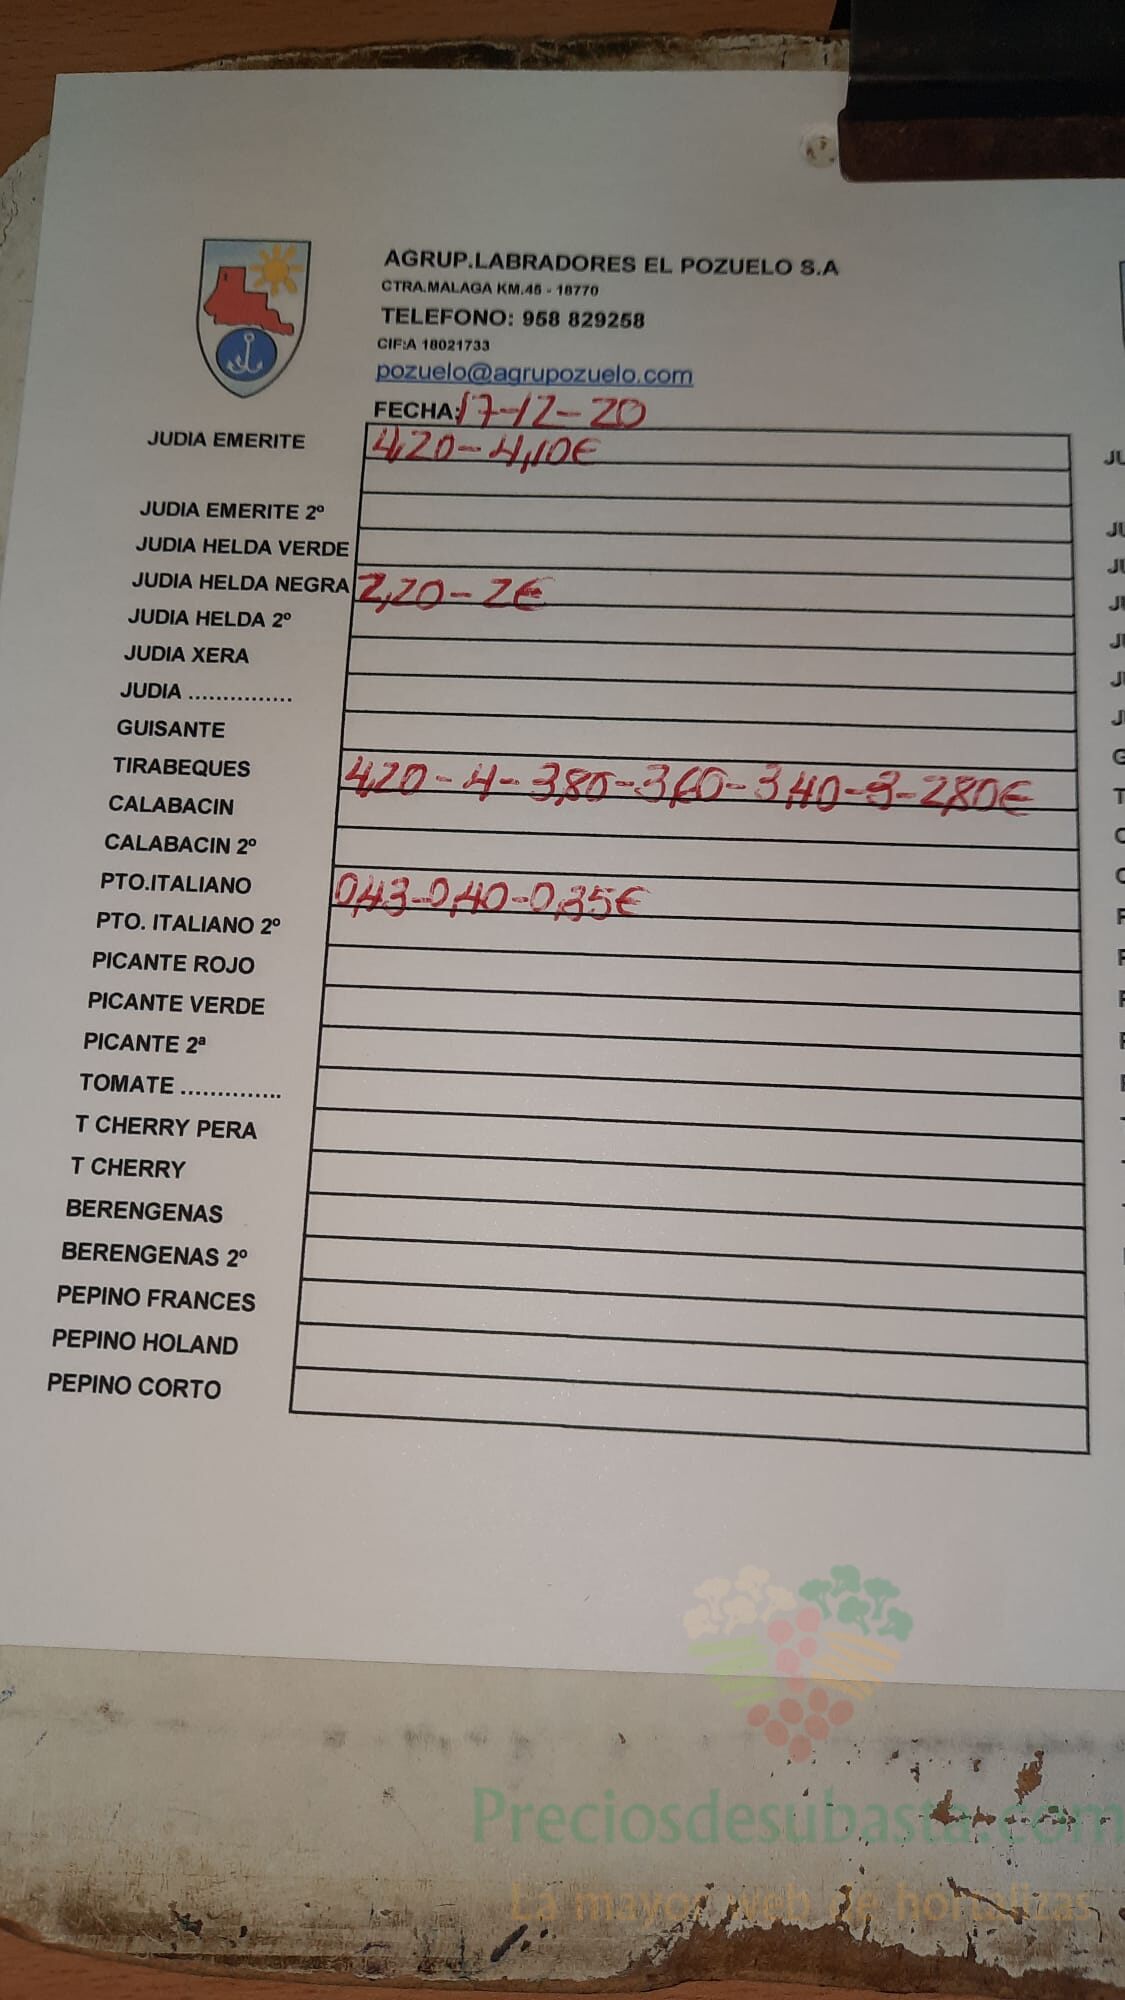 AGRUP.LABRADORES EL POZUELO S.A
CTRA.MALAGA KM.45 - 18770
TELEFONO: 958 829258
CIF:A 18021733
pozuelo@agrupozuelo.com
FECHA: 17-12-20
JUDIA EMERITE 4,20-4,10€
JUDIA EMERITE 2º
JUDIA HELDA VERDE
JUDIA HELDA NEGRA 2,20-2€
JUDIA HELDA 2º
JUDIA XERA
JUDIA ...............
GUISANTE
TIRABEQUES 4,20-4-3,80-3,60-3,40-3-2,80€
CALABACIN
CALABACIN 2º
PTO.ITALIANO 0,43-0,40-0,35€
PTO. ITALIANO 2º
PICANTE ROJO
PICANTE VERDE
PICANTE 2ª
TOMATE ..............
T CHERRY PERA
T CHERRY
BERENGENAS
BERENGENAS 2º
PEPINO FRANCES
PEPINO HOLAND
PEPINO CORTO
Preciosdesubasta.com
La mayor web de hortalizas